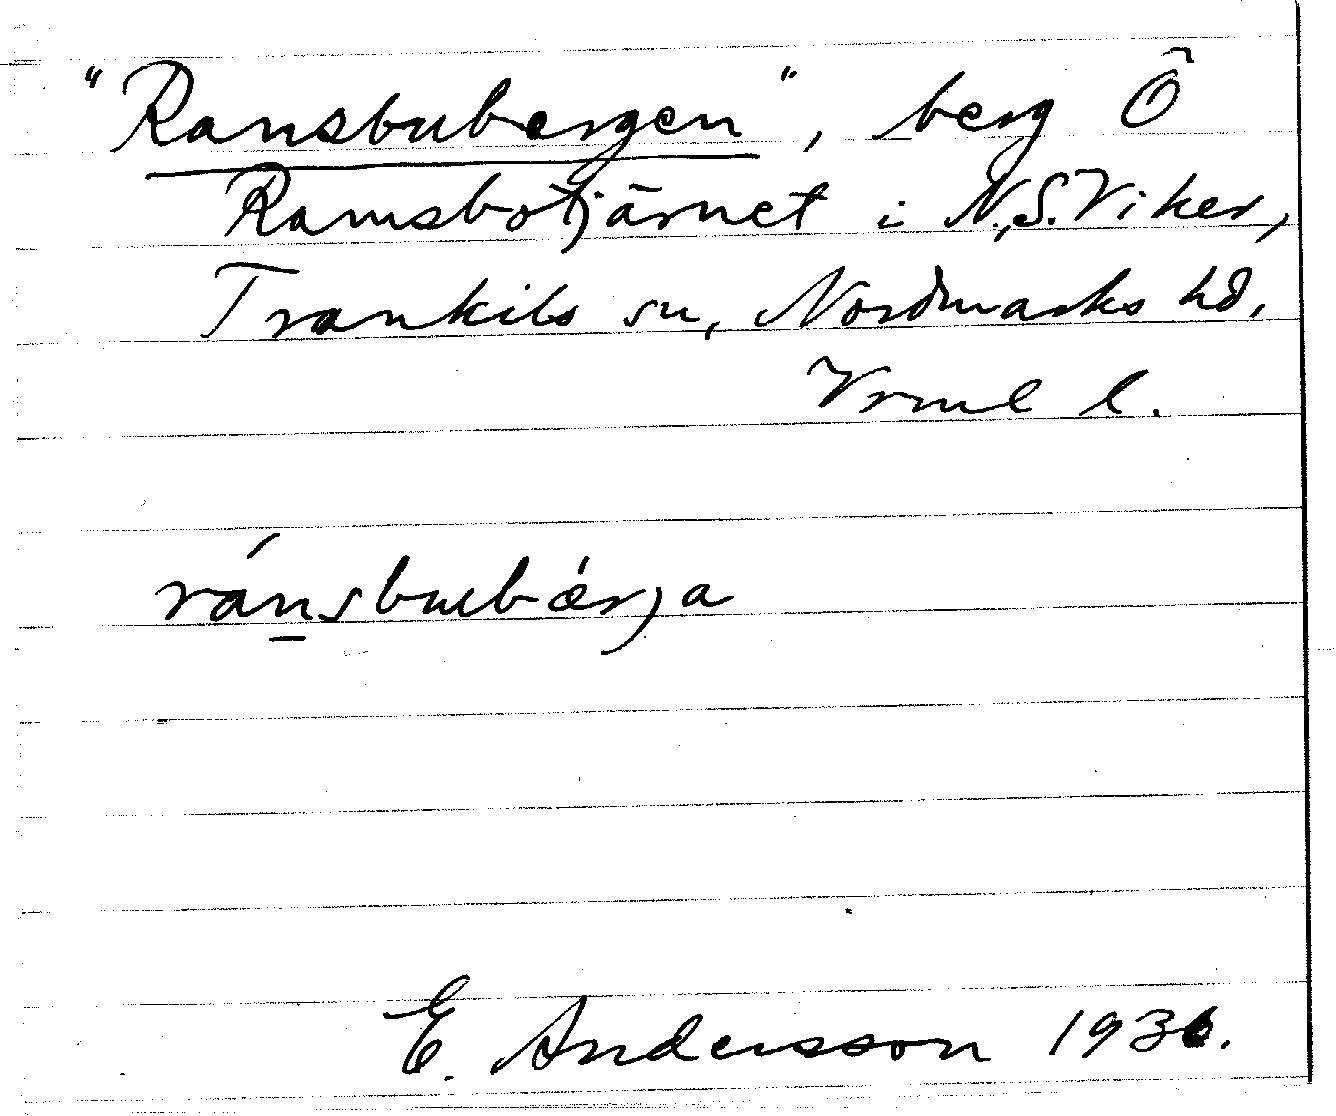 "Ransbubergen", berg Ö
Ramsbotjärnet i N.,S.Viker,
Trankils sn, Nordmarks hd,
Vrml l.
ránsbubǽrja
E. Andersson 1936.